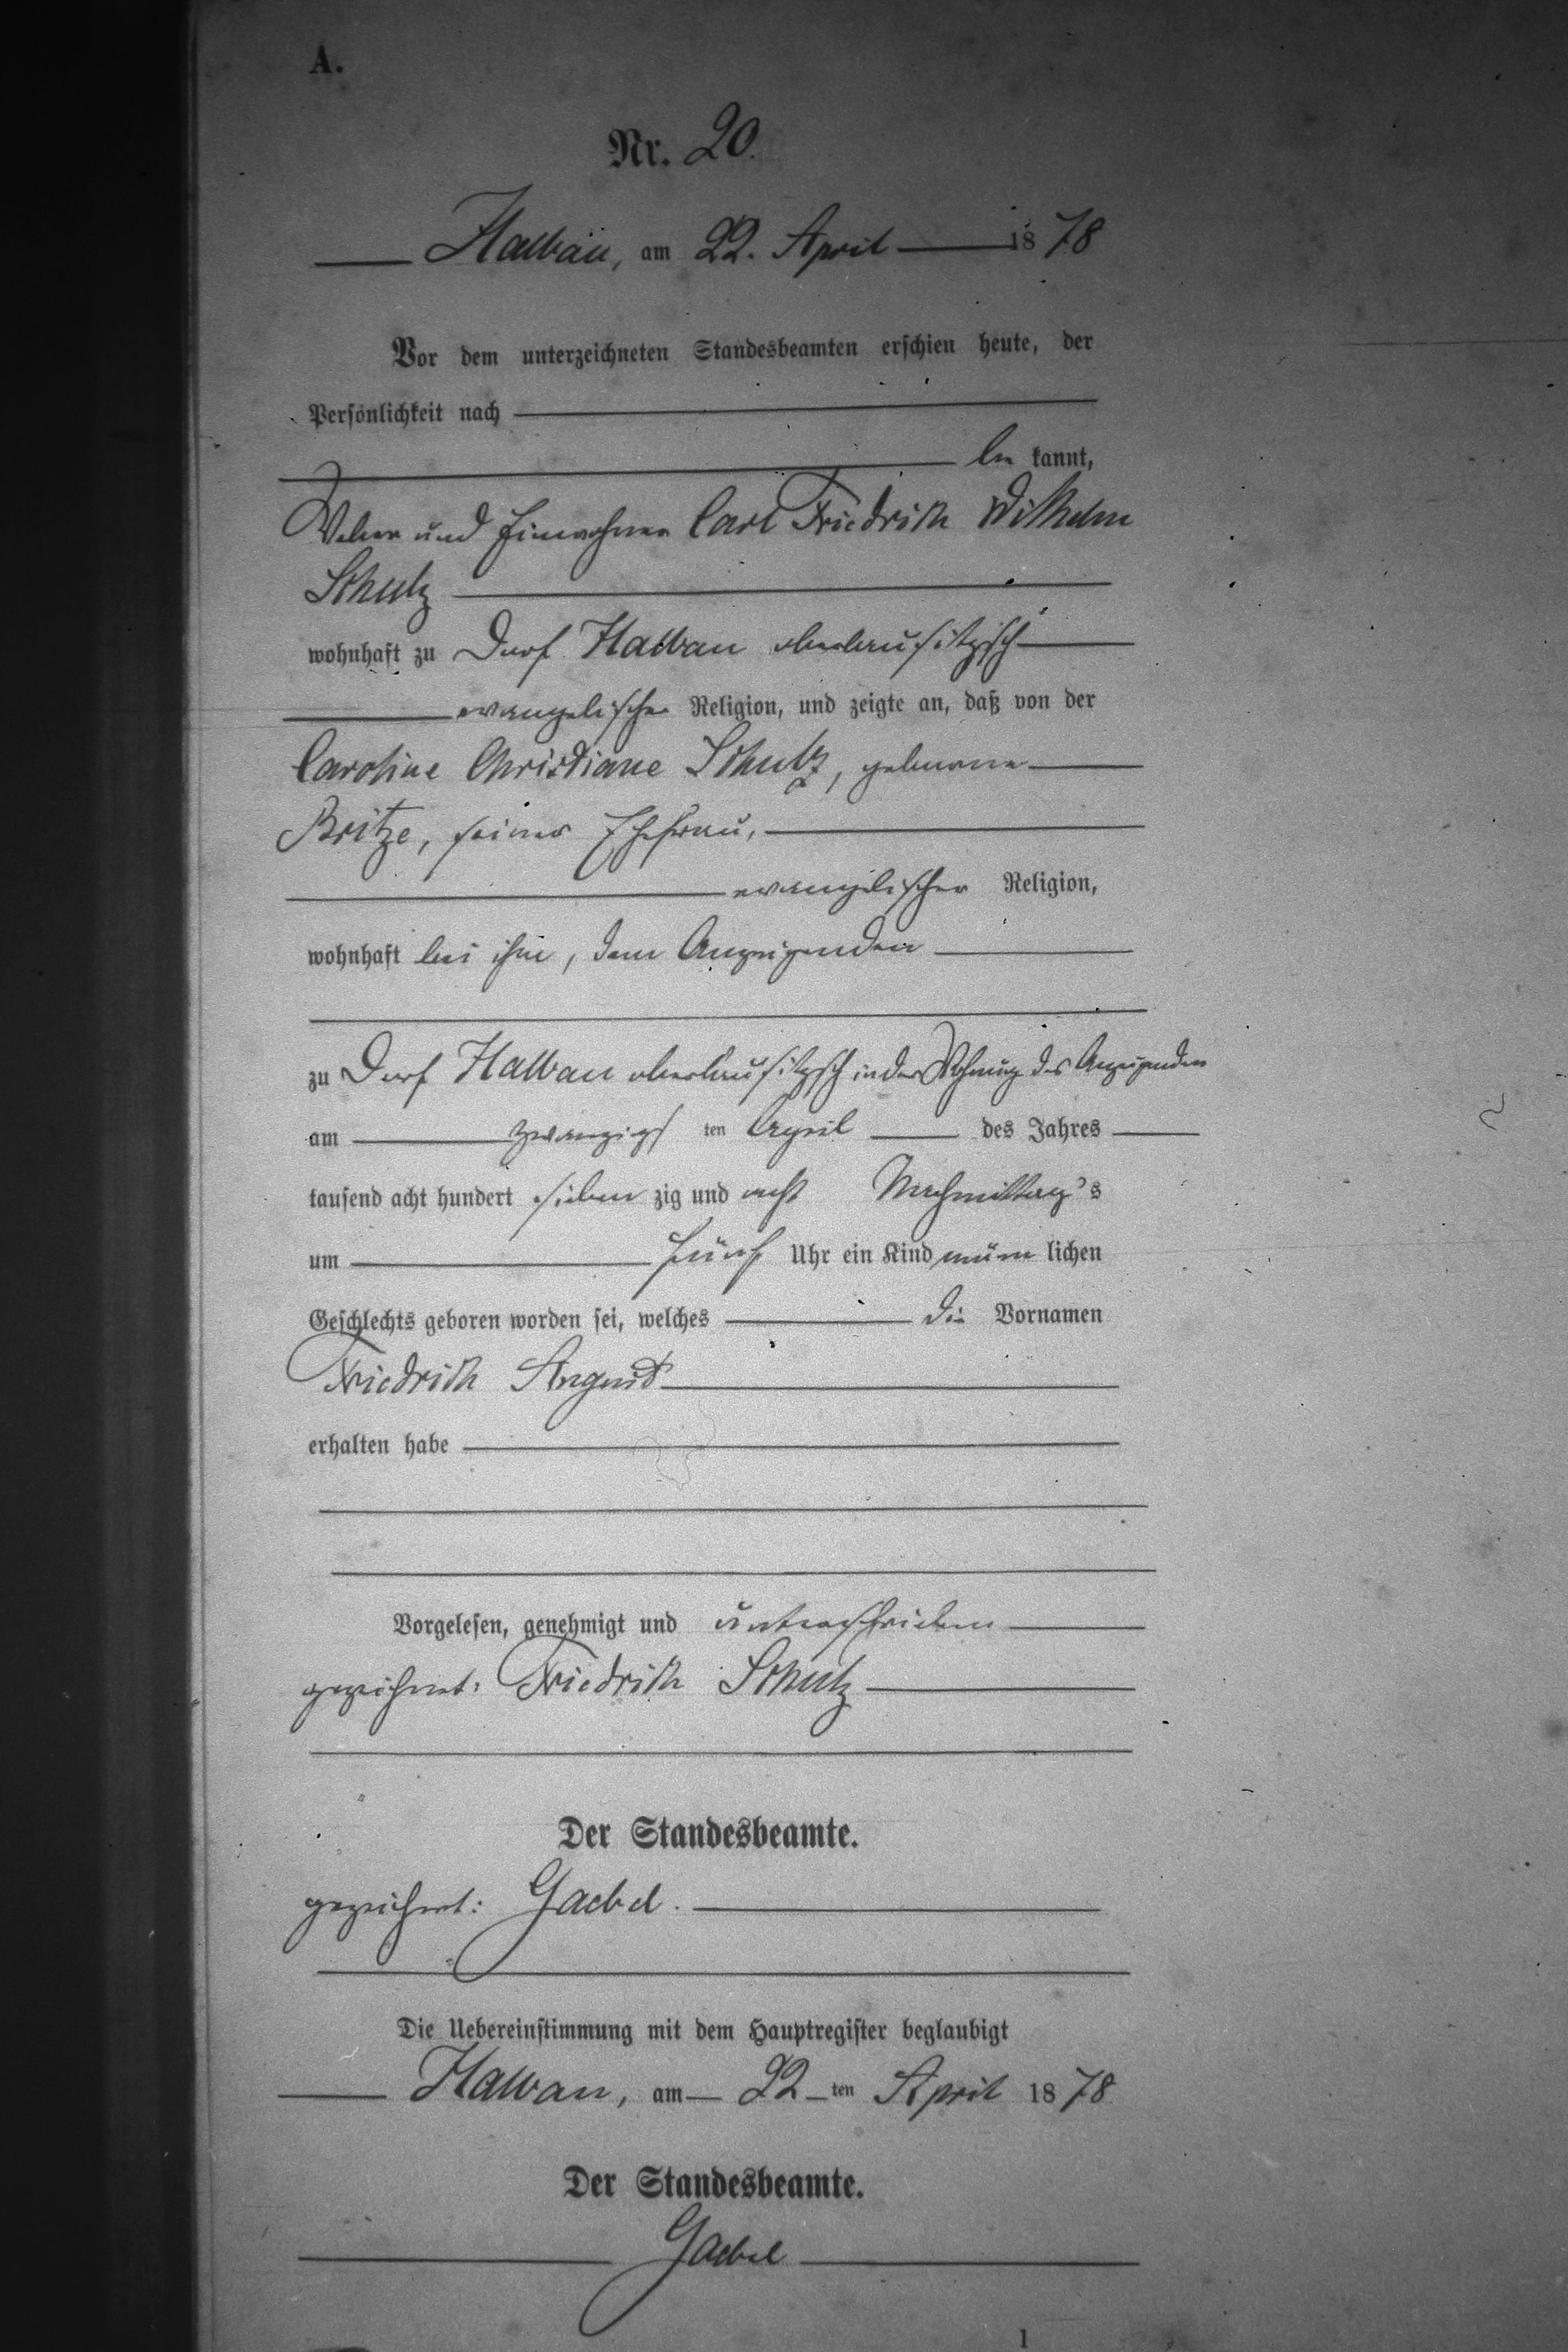 A.
Nr. 20.
Halbau, am 22. April 1878
Vor dem unterzeichneten Standesbeamten erschien heute, der
Persönlichkeit nach
be kannt,
Weber und Einwohner Carl Friedrich Wilhelm
Schulz
wohnhaft zu Dorf Halbau oberlausitzisch
evangelischer Religion, und zeigte an, daß von der
Caroline Christiane Schulz, geborene
Britze, seiner Ehefrau,
evangelischer Religion,
wohnhaft bei ihm, dem Anzeigenden
zu Dorf Halbau oberlausitzisch in der Wohnung des Anzeigenden
am zwanzigs ten April des Jahres
tausend acht hundert sieben zig und acht Nachmittag's
um fünf Uhr ein Kind männ lichen
Geschlechts geboren worden sei, welches die Vornamen
Friedrich August
erhalten habe
Vorgelesen, genehmigt und unterschrieben
gezeichnet: Friedrich Schulz
Der Standesbeamte.
gezeichnet: Gaebel.
Die Uebereinstimmung mit dem Hauptregister beglaubigt
Halbau, am 22 ten April 1878
Der Standesbeamte.
Gaebel
1